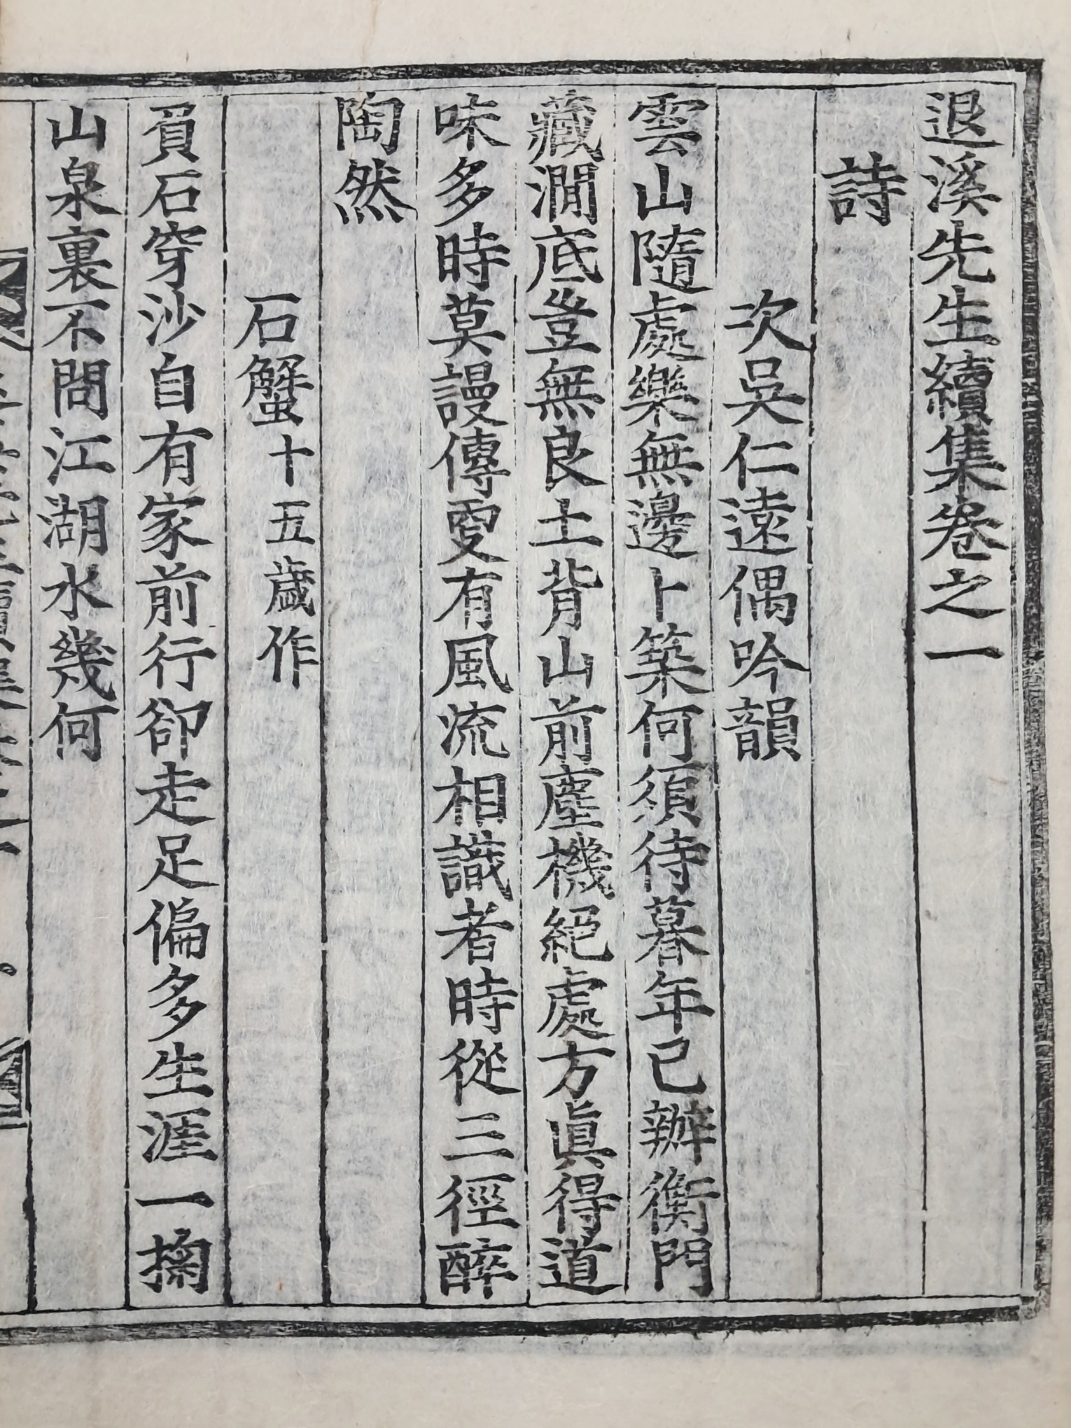 退溪先生續集卷之一
詩
次吳仁遠偶吟韻
雲山隨處樂無邊卜築何須待暮年已辦衡門
藏澗底豈無良土背山前塵機絕處方眞得道
味多時莫謾傳更有風流相識者時從三徑醉
陶然
石蟹十五歲作
負石穿沙自有家前行卻走足偏多生涯一掬
山泉裏不問江湖水幾何